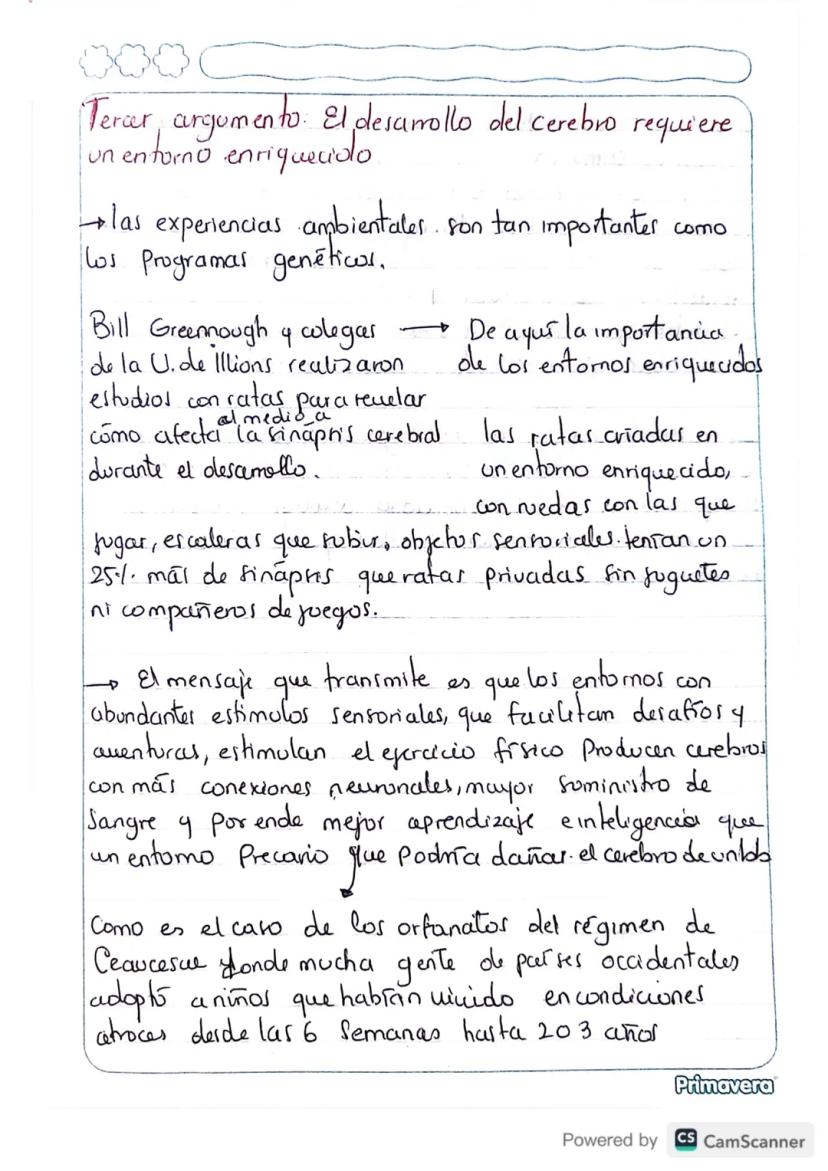 Tercer argumento: El desarrollo del cerebro requiere
un entorno enriquecido
→ las experiencias ambientales son tan importantes como
los Programas genéticos.
Bill Greennough y colegas → De aquí la importancia
de la U. de Illions realizaron de los entornos enriquecidos
estudios con ratas para revelar
al medio a
cómo afecta la sinapsis cerebral las ratas criadas en
durante el desarrollo. un entorno enriquecido,
con ruedas con las que
jugar, escaleras que subir, objetos sensoriales tenían un
25% más de sinapsis que ratas privadas sin juguetes
ni compañeros de juegos.
→ El mensaje que transmite es que los entornos con
abundantes estimulos sensoriales, que facilitan desafíos y
aventuras, estimulan el ejercicio físico Producen cerebros
con más conexiones neuronales, mayor suministro de
Sangre y Por ende mejor aprendizaje e inteligencia que
un entorno Precario que Podría dañar el cerebro de un bb
Como es el caso de los orfanatos del régimen de
Ceaucesue donde mucha gente de países occidentales
adoptó a niños que habían vivido en condiciones
atroces desde las 6 Semanas hasta 2 o 3 años
Primavera
Powered by CS CamScanner